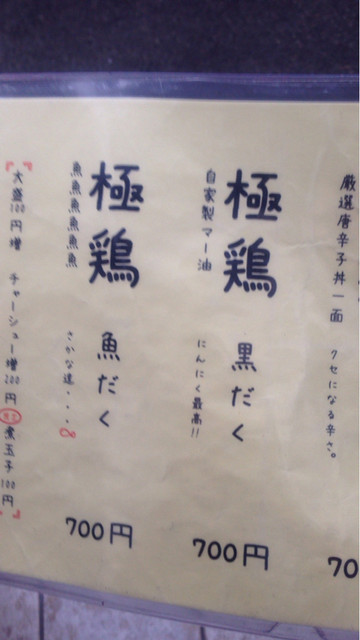 厳選唐辛子丼一面
クセになる辛さ。
70
極鶏 黒だく
自家製マー油
にんにく最高!!
700円
極鶏 魚だく
魚魚魚魚魚魚魚
さかな達・・・∞
700円
大盛100円増 チャーシュー増200円 煮玉子100円